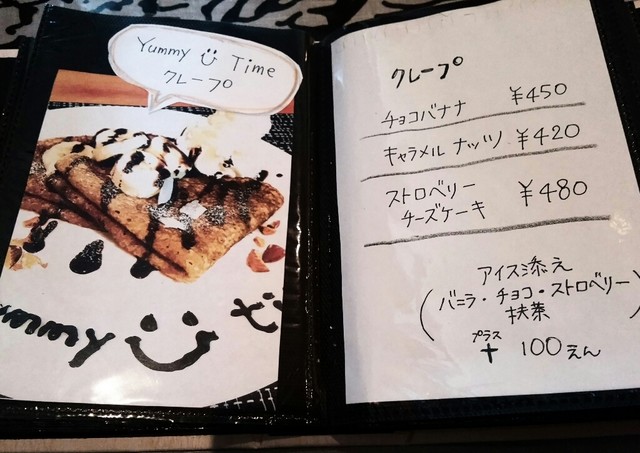 Yummy Time
クレープ
ummy
クレープ
チョコバナナ ¥450
キャラメル ナッツ ¥420
ストロベリー
チーズケーキ ¥480
アイス添え
(バニラ・チョコ・ストロベリー
抹茶)
プラス
+ 100えん